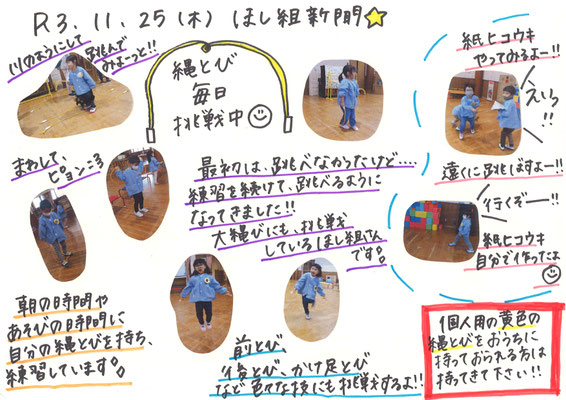 R3.11.25(木) ほし組新聞
川のようにして
跳んで
みよーっと!!
縄とび
毎日
挑戦中
紙ヒコウキ
やってみるよー!!
えいっ
!!
遠くに跳ばすよー!!
まわして、
ピョンころ
最初は、跳べなかったけど....
練習を続けて、跳べるように
なってきました!!
大縄びにも、挑戦
しているほし組さん
です。
行くぞー!!
紙ヒコウキ
自分で作ったよ
朝の時間や
あそびの時間に
自分の縄とびを持ち、
練習しています。
前とび、
後とび、かけ足とび
など色々な技にも挑戦するよ!!
個人用の黄色の
縄とびをおうちに
持っておられる方は
持ってきて下さい!!